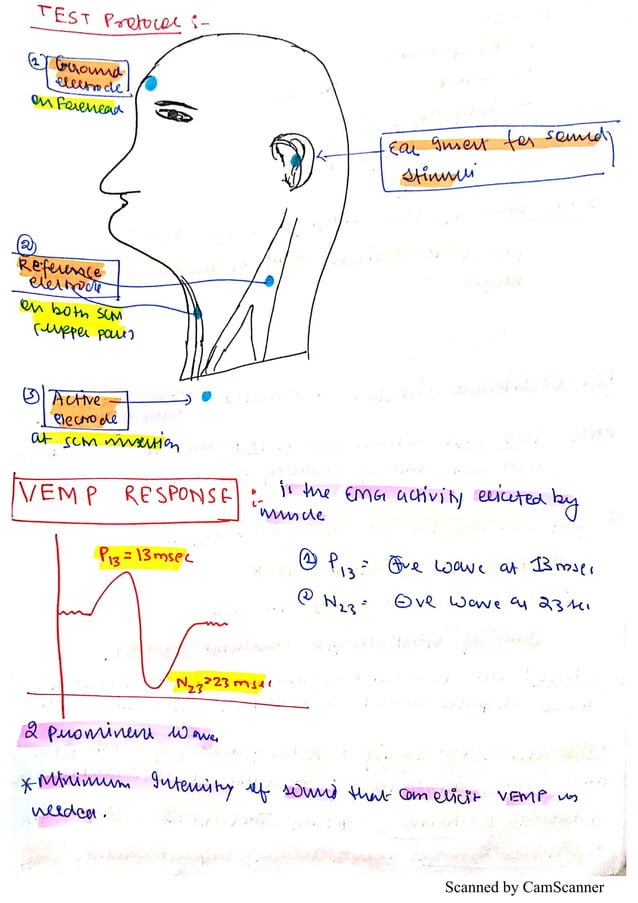 TEST Protocol :-
① Ground
electrode
on Forehead
Ear Insert for sound
stimuli
②
Reference
electrode
on both SCM
(upper part)
③ Active
electrode
at SCM insertion
VEMP RESPONSE :- is the EMG activity elicited by
muscle
P13 = 13 msec
① P13 = ⊕ve wave at 13 msec
② N23 = ⊖ve wave at 23 sec
N23 = 23 msec
2 prominent waves
* Minimum Intensity of sound that can elicit VEMP is
needed.
Scanned by CamScanner